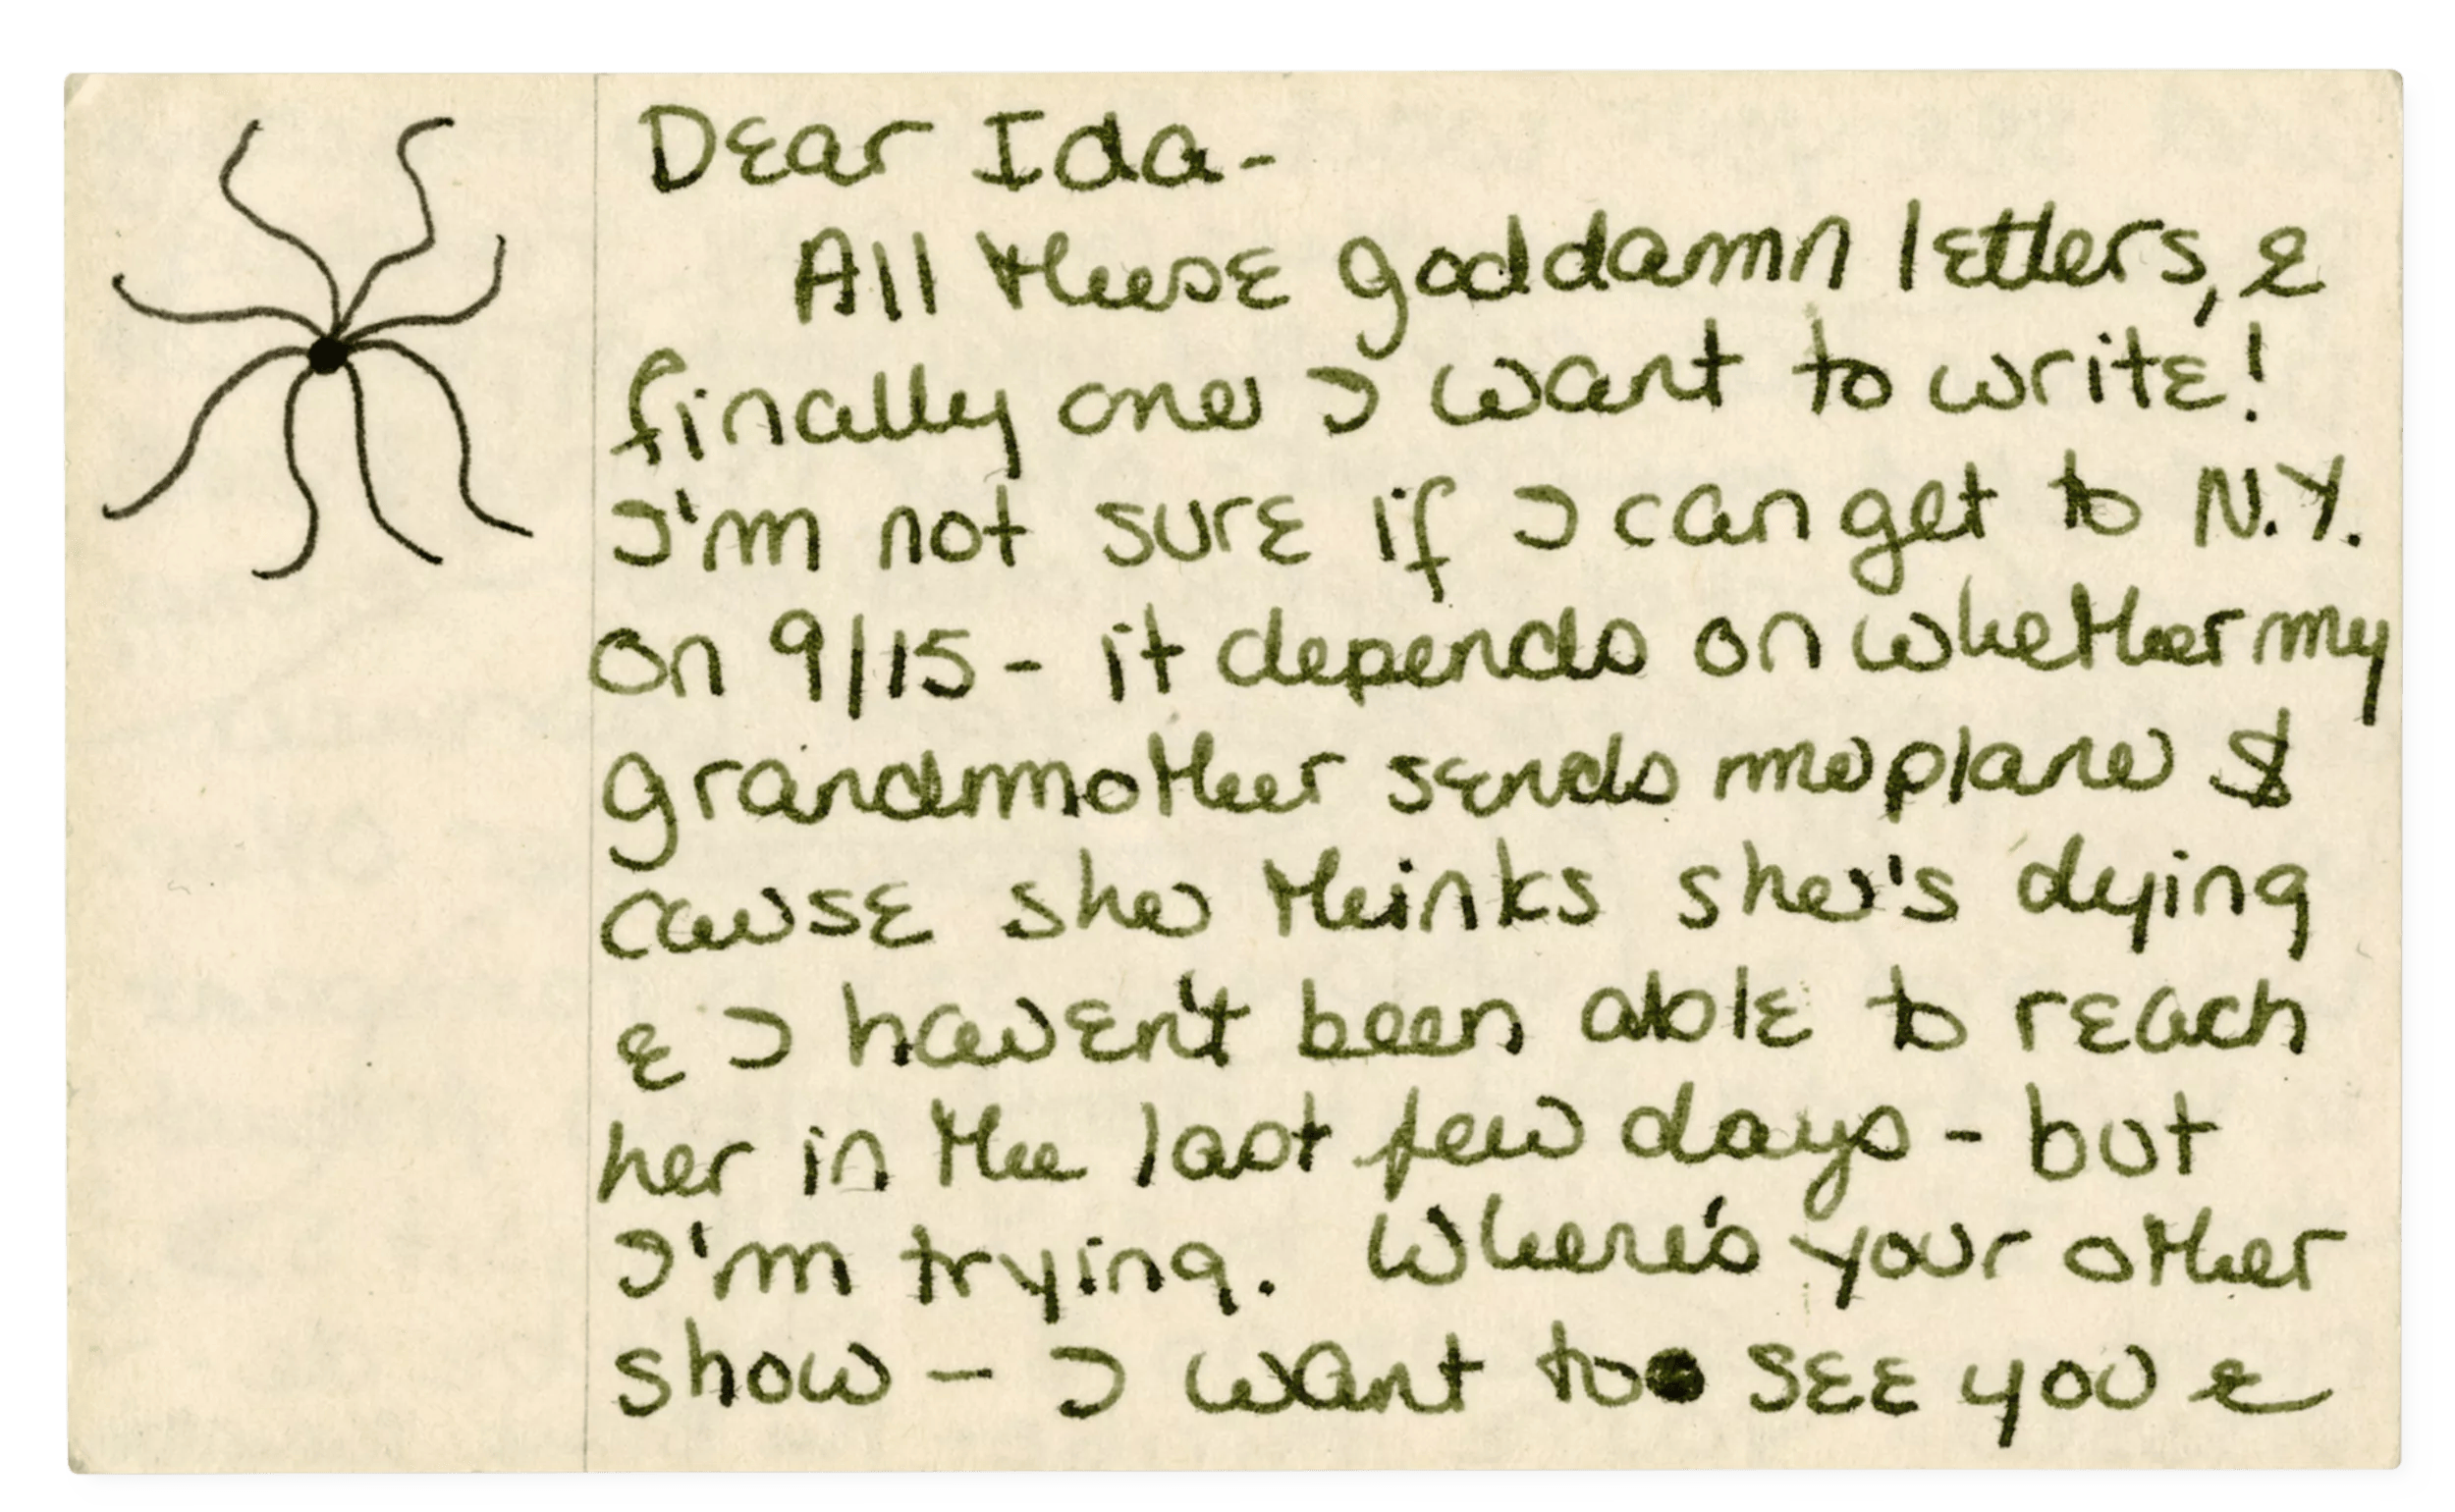 Dear Ida-
All these goddamn letters, &
finally one I want to write!
I'm not sure if I can get to N.Y.
on 9/15 - it depends on whether my
grandmother sends me plane $
cause she thinks she's dying
& I haven't been able to reach
her in the last few days - but
I'm trying. Where's your other
show - I want to see you &